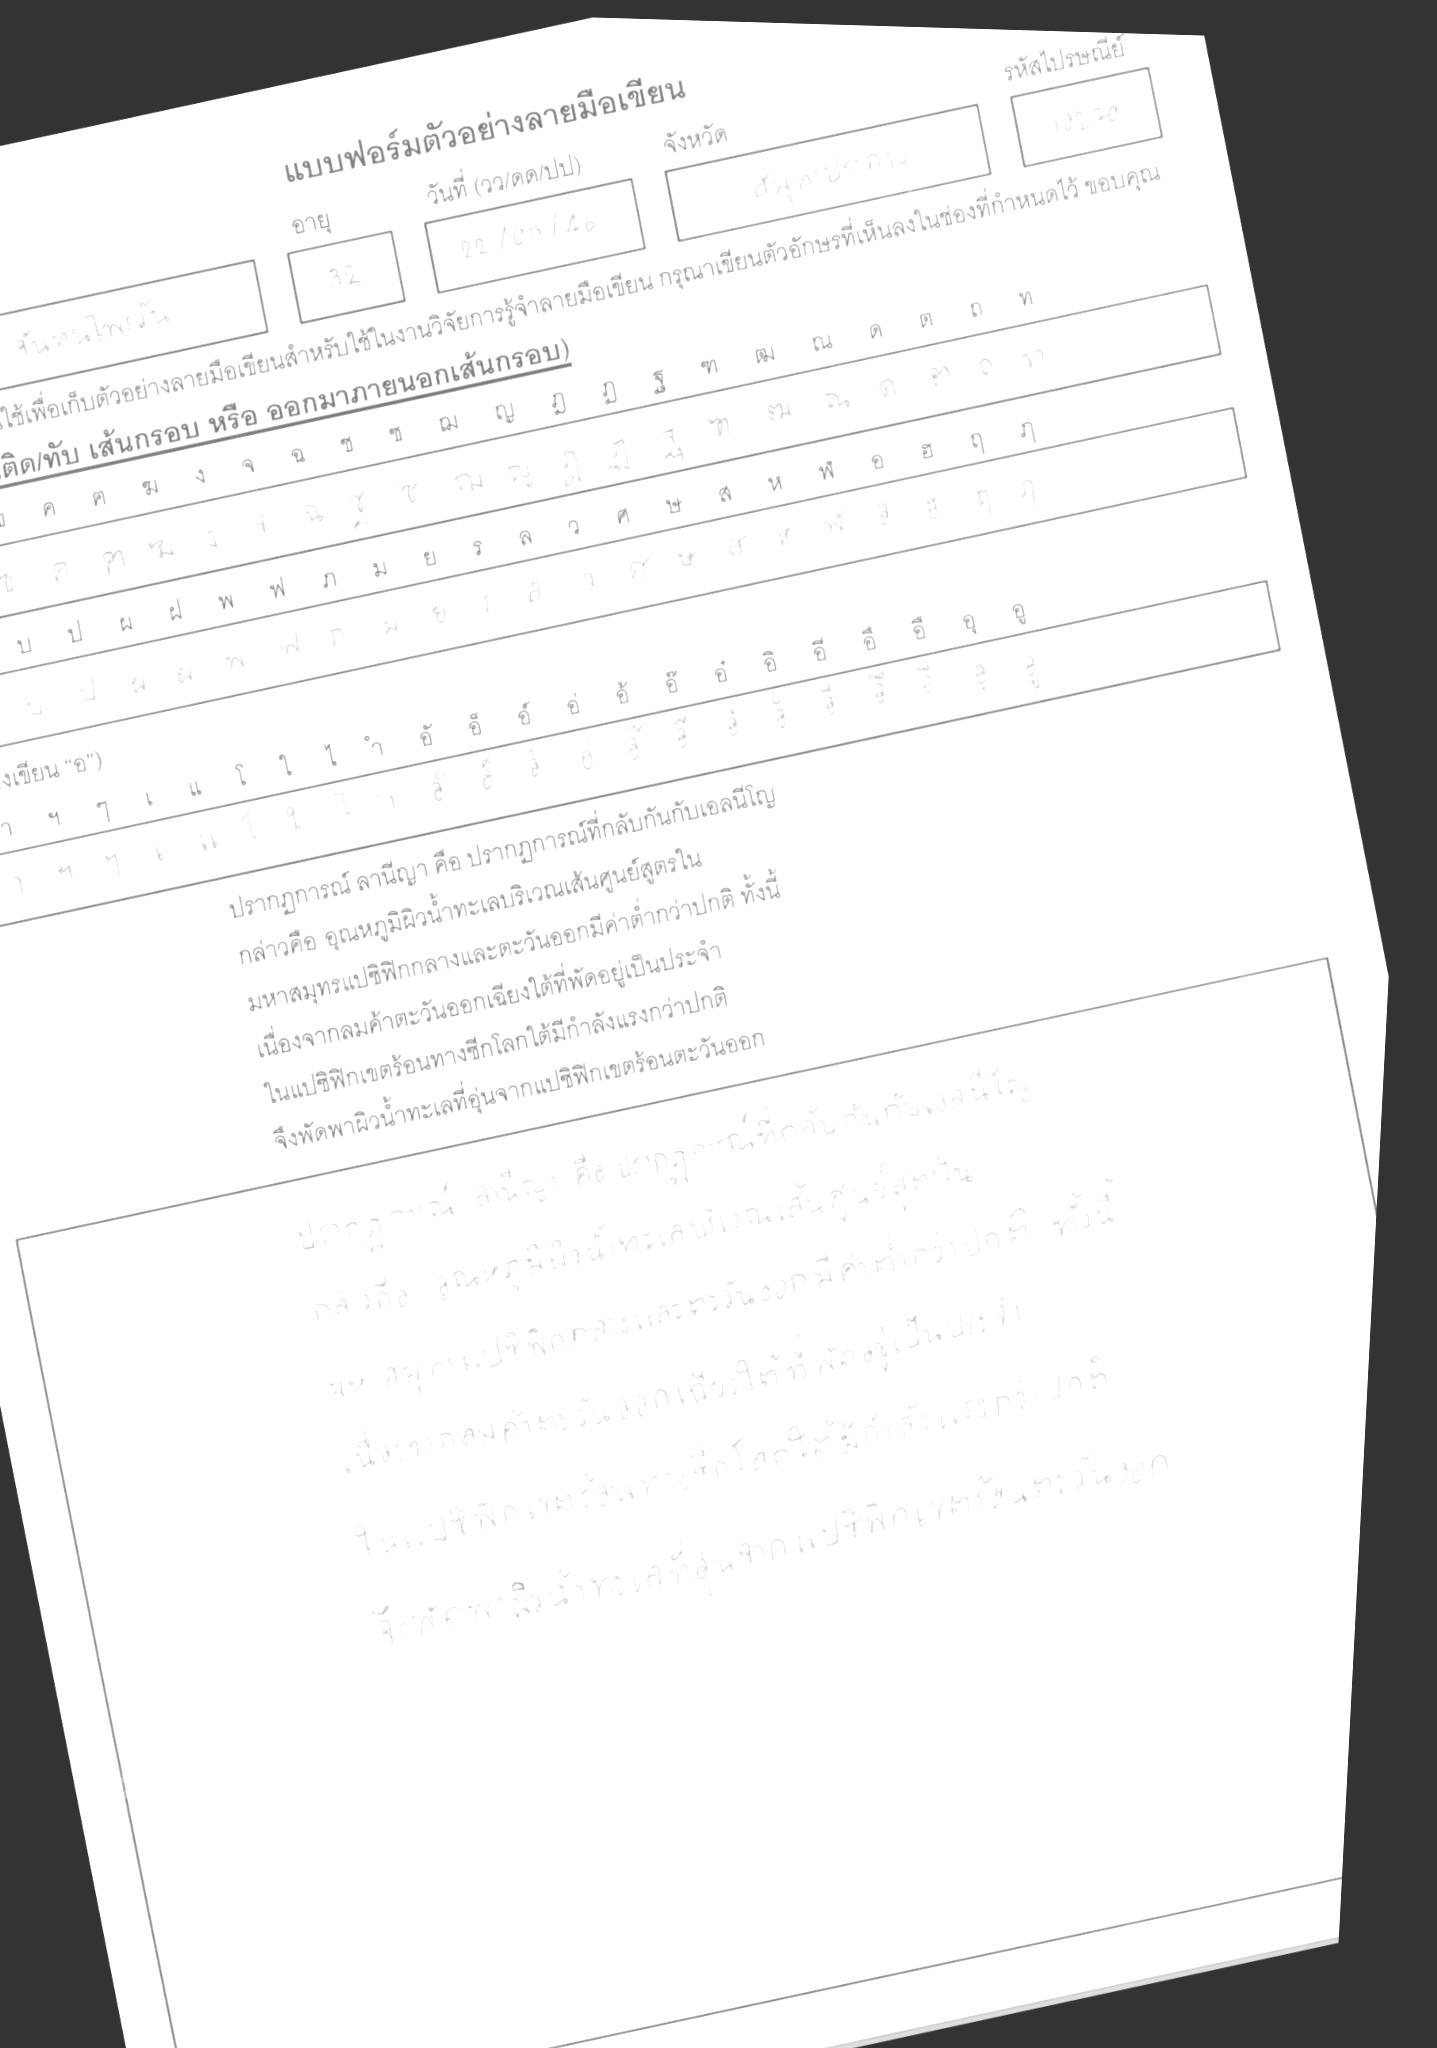 แบบฟอร์มตัวอย่างลายมือเขียน
อายุ วันที่ (วว/ดด/ปป) จังหวัด รหัสไปรษณีย์
32 22 /
ใช้เพื่อเก็บตัวอย่างลายมือเขียนสำหรับใช้ในงานวิจัยการรู้จำลายมือเขียน กรุณาเขียนตัวอักษรที่เห็นลงในช่องที่กำหนดไว้ ขอบคุณ
ติด/ทับ เส้นกรอบ หรือ ออกมาภายนอกเส้นกรอบ)
ค ฅ ฆ ง จ ฉ ช ซ ฌ ญ ฎ ฏ ฐ ฑ ฒ ณ ด ต ถ ท
ค ฅ ฆ ง จ ฉ ซ ฌ ญ ฎ ฏ ฐ ฑ ฒ ณ ด ต ถ ท
บ ป ผ ฝ พ ฟ ภ ม ย ร ล ว ศ ษ ส ห ฬ อ ฮ ฤ ฦ
บ ป ผ ฝ พ ฟ ภ ม ย ร ล ว ศ ษ ส ห ฬ อ ฮ ฤ ฦ
งเขียน “อ”)
า ฯ ๆ เ แ โ ใ ไ ำ อั อ็ อ์ อ่ อ้ อ๊ อ๋ อิ อี อึ อื อุ อู
า ฯ ๆ เ แ โ ใ ไ อั อ็ อ์
ปรากฏการณ์ ลานีญา คือ ปรากฏการณ์ที่กลับกันกับเอลนีโญ
กล่าวคือ อุณหภูมิผิวน้ำทะเลบริเวณเส้นศูนย์สูตรใน
มหาสมุทรแปซิฟิกกลางและตะวันออกมีค่าต่ำกว่าปกติ ทั้งนี้
เนื่องจากลมค้าตะวันออกเฉียงใต้ที่พัดอยู่เป็นประจำ
ในแปซิฟิกเขตร้อนทางซีกโลกใต้มีกำลังแรงกว่าปกติ
จึงพัดพาผิวน้ำทะเลที่อุ่นจากแปซิฟิกเขตร้อนตะวันออก
ปรากฏการณ์ ลานีญา คือ ปรากฏการณ์ที่กลับกันกับเอลนีโญ
อุณหภูมิผิวน้ำทะเลบริเวณเส้นศูนย์สูตรใน
แปซิฟิกกลางและตะวันออกมีค่าต่ำกว่าปกติ ทั้งนี้
เนื่องจากลมค้าตะวันออกเฉียงใต้ที่พัดอยู่เป็นประจำ
ในแปซิฟิกเขตร้อนทางซีกโลกใต้มีกำลังแรงกว่าปกติ
จึงพัดพาผิวน้ำทะเลที่อุ่นจากแปซิฟิกเขตร้อนตะวันออก